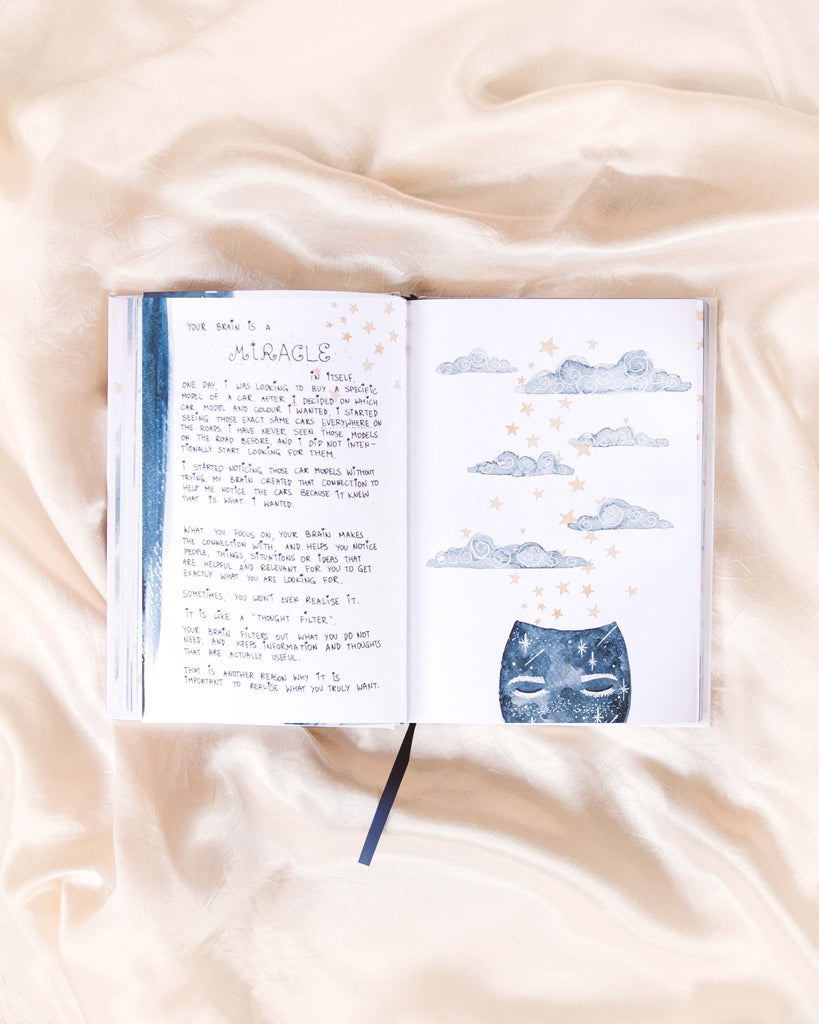 YOUR BRAIN IS A
MIRACLE
IN ITSELF.
ONE DAY, I WAS LOOKING TO BUY A SPECIFIC
MODEL OF A CAR. AFTER I DECIDED ON WHICH
CAR MODEL AND COLOUR I WANTED, I STARTED
SEEING THOSE EXACT SAME CARS EVERYWHERE ON
THE ROADS. I HAVE NEVER SEEN THOSE MODELS
ON THE ROAD BEFORE, AND I DID NOT INTEN-
TIONALLY START LOOKING FOR THEM.
I STARTED NOTICING THOSE CAR MODELS WITHOUT
TRYING. MY BRAIN CREATED THAT CONNECTION TO
HELP ME NOTICE THE CARS BECAUSE IT KNEW
THAT IS WHAT I WANTED.
WHAT YOU FOCUS ON, YOUR BRAIN MAKES
THE CONNECTION WITH, AND HELPS YOU NOTICE
PEOPLE, THINGS, SITUATIONS OR IDEAS THAT
ARE HELPFUL AND RELEVANT FOR YOU TO GET
EXACTLY WHAT YOU ARE LOOKING FOR.
SOMETIMES, YOU WON'T EVEN REALISE IT.
IT IS LIKE A "THOUGHT FILTER".
YOUR BRAIN FILTERS OUT WHAT YOU DO NOT
NEED, AND KEEPS INFORMATION AND THOUGHTS
THAT ARE ACTUALLY USEFUL.
THAT IS ANOTHER REASON WHY IT IS
IMPORTANT TO REALISE WHAT YOU TRULY WANT.